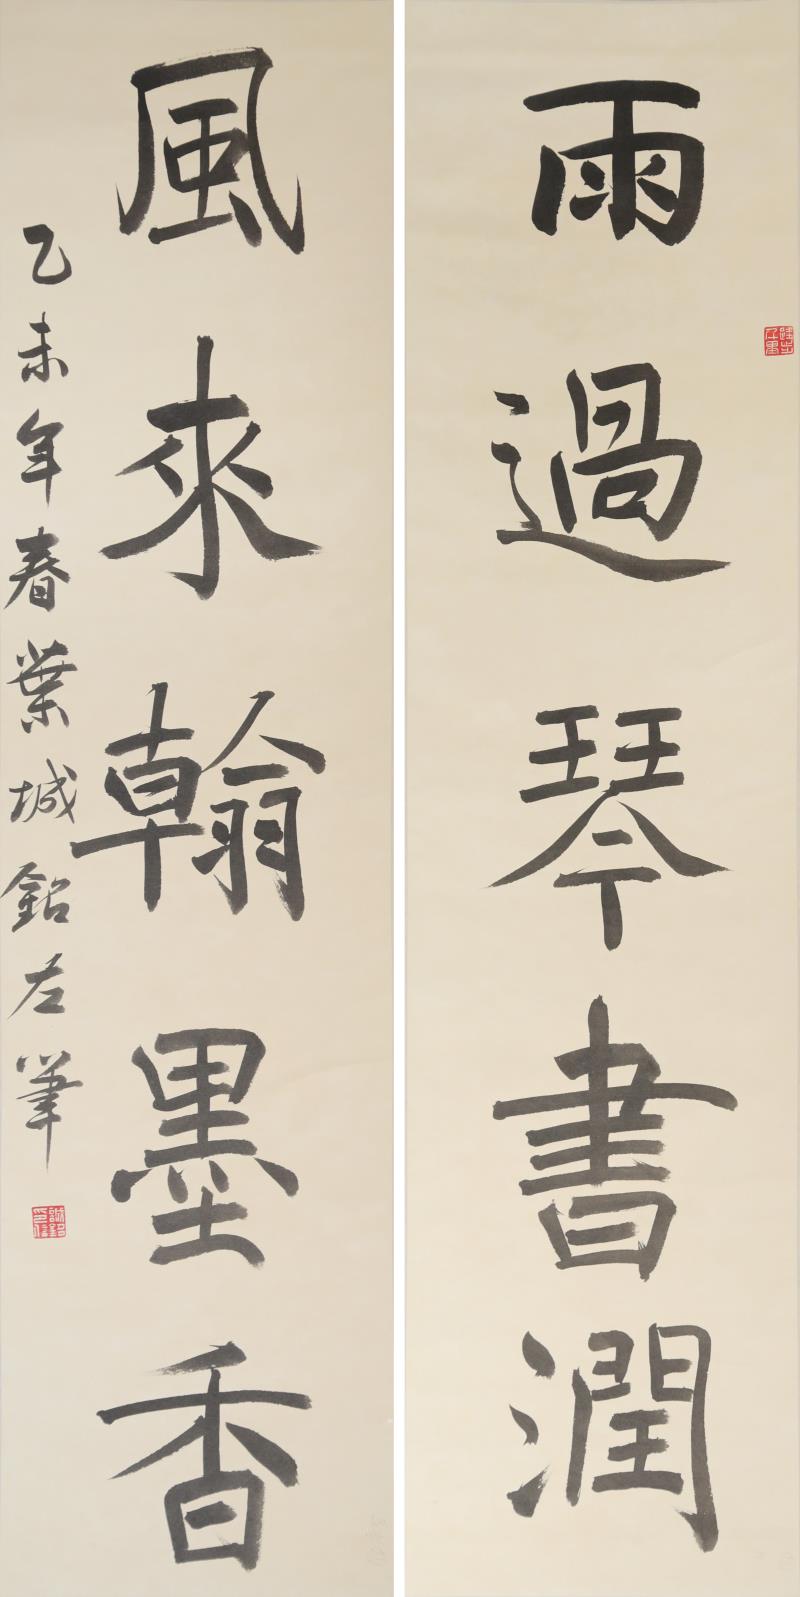 雨過琴書潤
風來翰墨香
乙未年春葉城鉊左筆